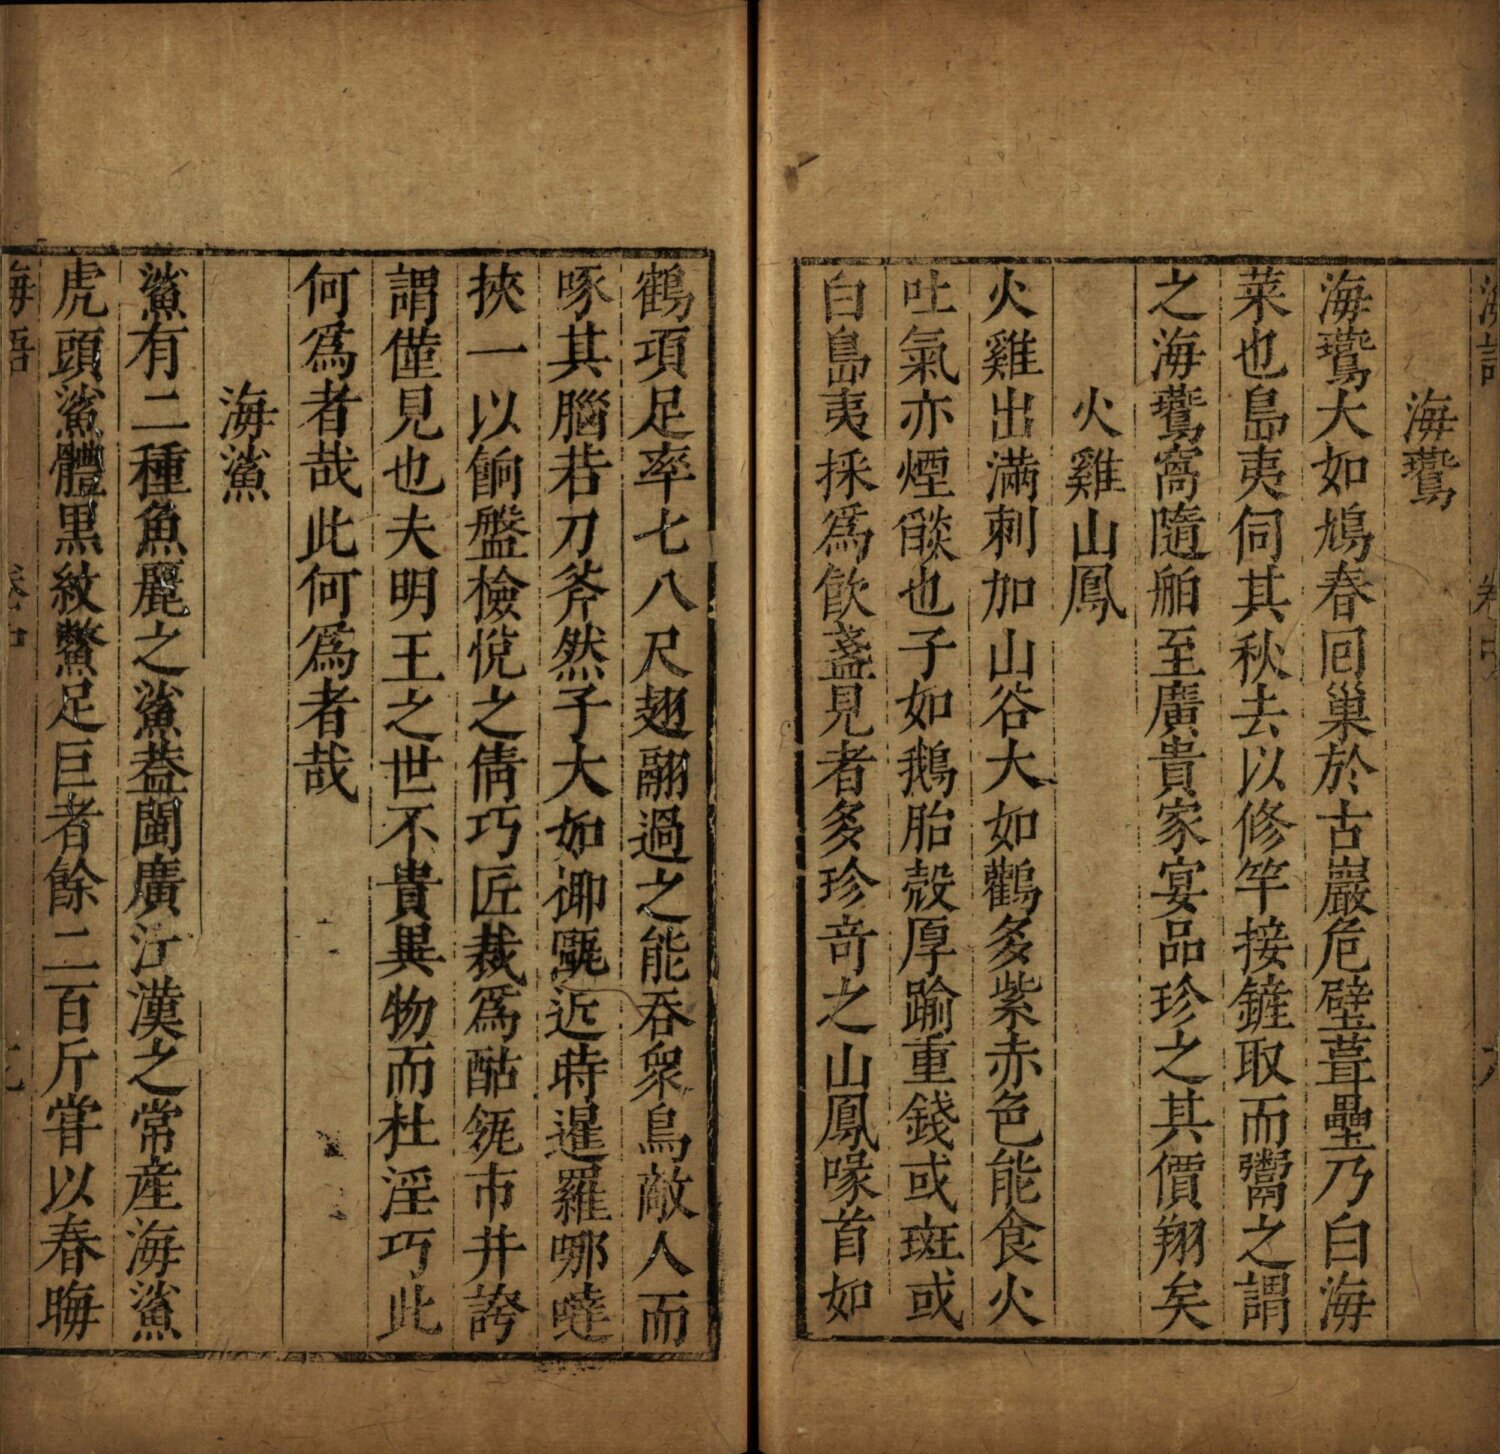 海語 卷中
海鷰
海鷰大如鳩春回巢於古巖危壁葺壘乃白海
菜也島夷伺其秋去以修竿接鏟取而鬻之謂
之海鷰窩隨舶至廣貴家宴品珍之其價翔矣
火雞山鳳
火雞出滿剌加山谷大如鸛多紫赤色能食火
吐氣亦煙燄也子如鵝胎殼厚踰重錢或斑或
白島夷採爲飲盞見者多珍奇之山鳳喙首如
鶴項足率七八尺翅翮過之能吞衆鳥敵人而
啄其腦若刀斧然子大如御甌近時暹羅哪噠
挾一以餉盤檢悅之倩巧匠裁爲酤瓻市井誇
謂僅見也夫明王之世不貴異物而杜淫巧此
何爲者哉此何爲者哉
海鯊
鯊有二種魚麗之鯊蓋閩廣江漢之常產海鯊
虎頭鯊體黑紋鱉足巨者餘二百斤嘗以春晦
海語 卷中